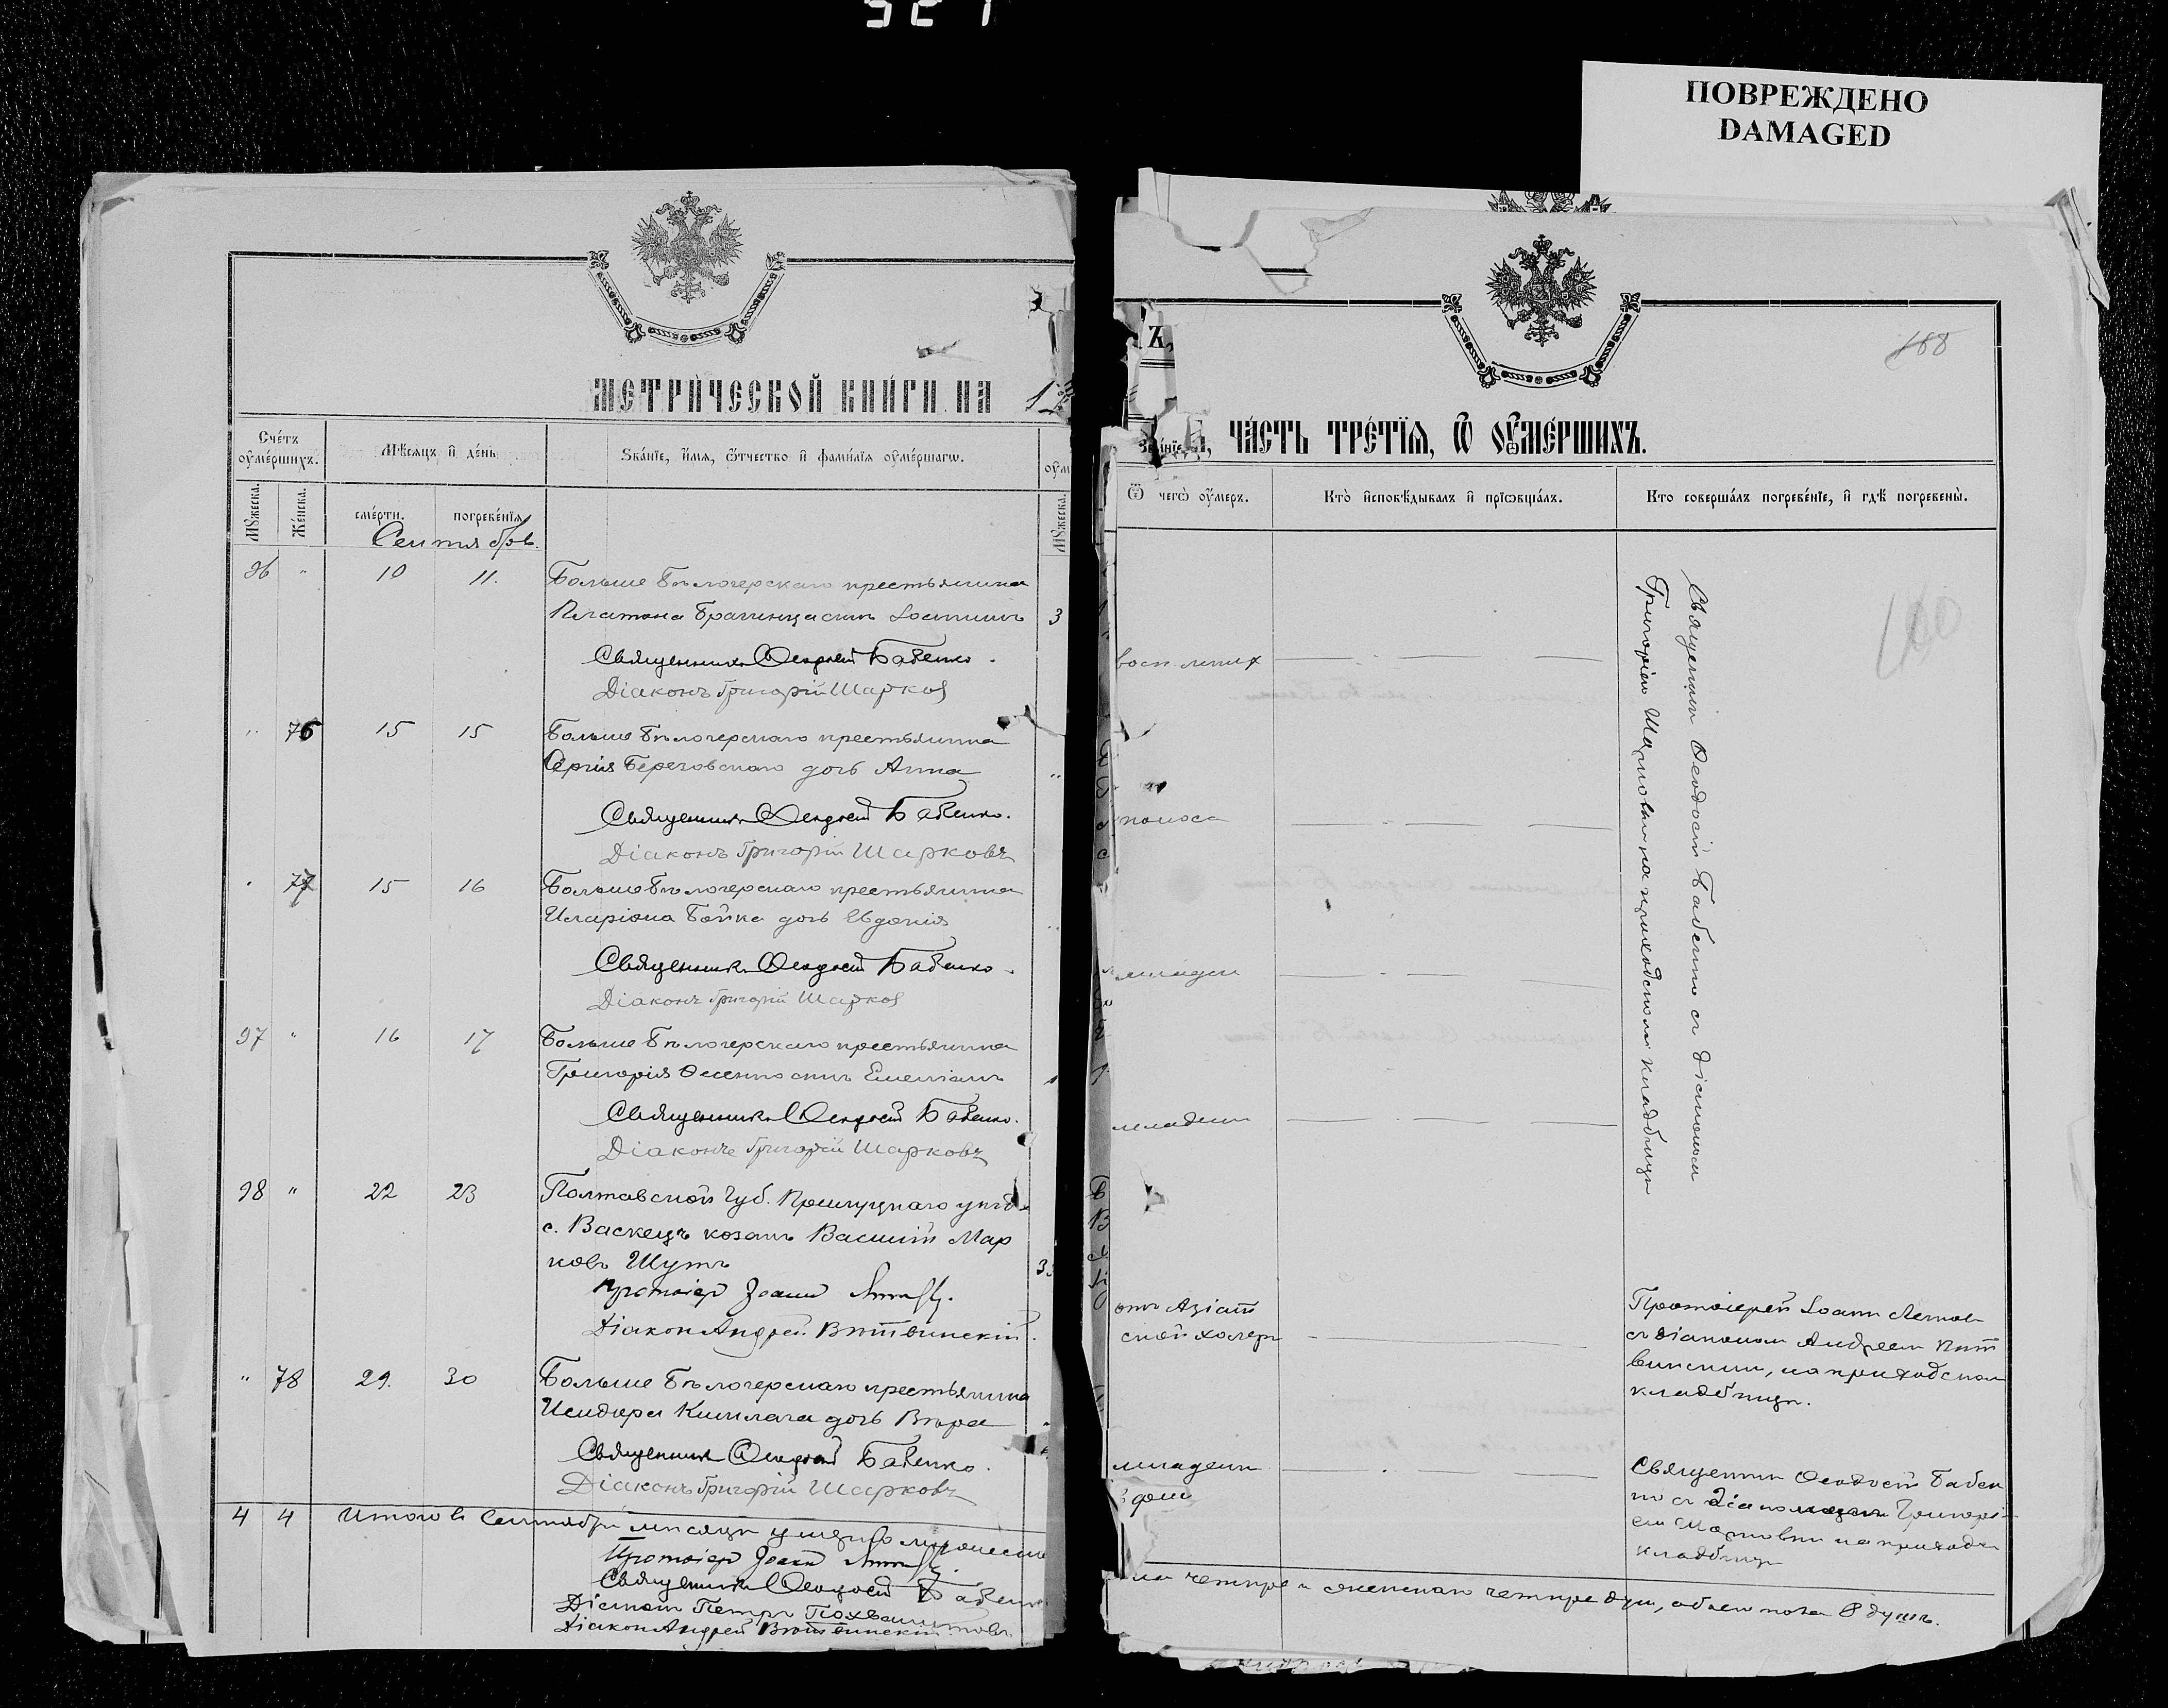 ПОВРЕЖДЕНО
DAMAGED
МЕТРИЧЕСКОЙ КНИГИ НА 1
Счетъ умершихъ.
Мѣсяцъ и день
Званіе, имя, отчество и фамилія умершагѡ.
Мужеска.
Женска.
смерти.
погребенія
Сентябрь.
96 " 10 11. Больше Бѣлозерскаго крестьянина
Платона Брагинца сынъ Іоаннъ 3
Священникъ Ѳеодосій Бабенко.
Діаконъ Григорій Шарковъ
" 76 15 15 Больше Бѣлозерскаго крестьянина
Сергія Береговскаго дочь Анна "
Священникъ Ѳеодосій Бабенко.
Діаконъ Григорій Шарковъ
" 77 15 16 Больше Бѣлозерскаго крестьянина
Иларіона Бойка дочь Евдокія
Священникъ Ѳеодосій Бабенко.
Діаконъ Григорій Шарковъ
97 " 16 17 Больше Бѣлозерскаго крестьянина
Григорія сынъ Емеліанъ
Священникъ Ѳеодосій Бабенко.
Діаконъ Григорій Шарковъ
98 " 22 23 Полтавской губ. Прилуцкаго уѣзд
с. козакъ Василій Мар
ковъ Шутъ
Протоіер Іоаннъ
Діаконъ Андрей Витвинскій.
" 78 29. 30 Больше Бѣлозерскаго крестьянина
Исидора дочь Вѣра
Священникъ Ѳеодосій Бабенко.
Діаконъ Григорій Шарковъ
4 4 Итого въ Сентябрѣ мѣсяцѣ умерло мужеска
Протоіер Іоаннъ
Священникъ Ѳеодосій Бабенко
Діаконъ Петръ
Діаконъ Андрей Витвинскій
Ъ, ЧАСТЬ ТРЕТІЯ, Ѡ УМЕРШИХЪ.
188
Ѿ чегѡ умеръ.
Кто исповѣдывалъ и пріѡбщалъ.
Кто совершалъ погребеніе, и гдѣ погребены.
160
Священникъ Ѳеодосій Бабенко съ діакономъ
Григоріемъ Шарковымъ на приходскомъ кладбищѣ
восп. легких
поноса
младен
младен
отъ Азіат
ской холеры
Протоіерей Іоаннъ
съ діакономъ Андреем Вит
винским, на приходском
кладбищѣ.
младен
Священник Ѳеодосій Бабен
ко съ діаконом Григорі
ем Шарковым на приходс
кладбищѣ
четыре и женскаго четыре душ, обоего пола 8 душъ.